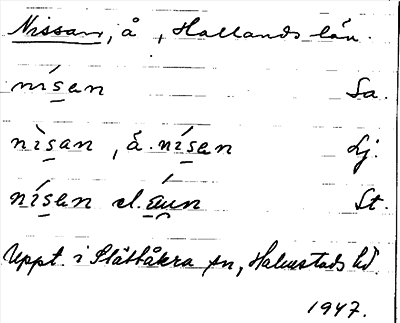 Nissan, å, Hallands län.
nísan Sa.
nìsan, å. nísan Lj.
nísen el. áun St.
Uppt. i Slättåkra sn, Halmstads hd
1947.